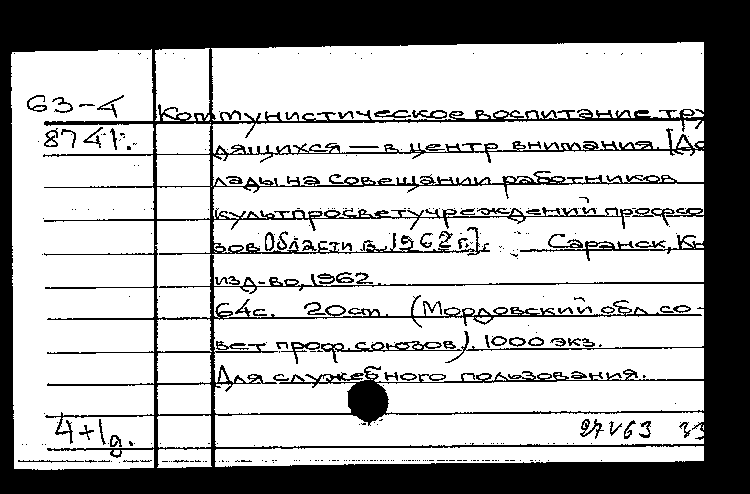 63-4 Коммунистическое воспитание тру
8741. дящихся — в центр внимания. [До
лады на совещании работников
культпросветучреждений профсо
зов области в 1962 г.]. Саранск, Кн
изд-во, 1962.
64с. 20сm. (Мордовский обл. со-
вет проф. союзов). 1000 экз.
Для служебного пользования.
4+1д. 27 V 63